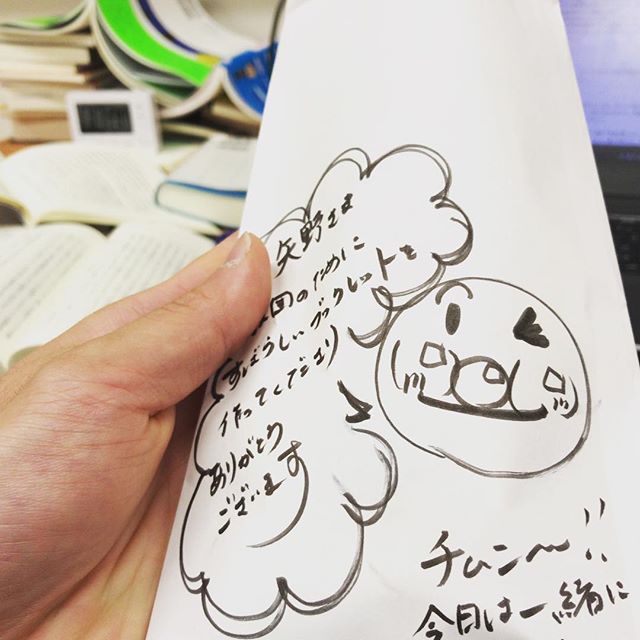 矢野さま
回のために
すばらしいブックレットを
作ってくださり
ありがとう
ございます
チムニ〜!!
今日は一緒に